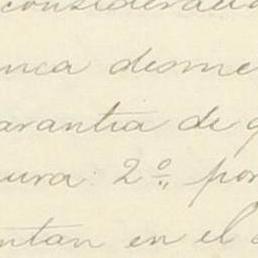 considerad
nca desme
arantia de q
ura: 2º,, por
ntan en el